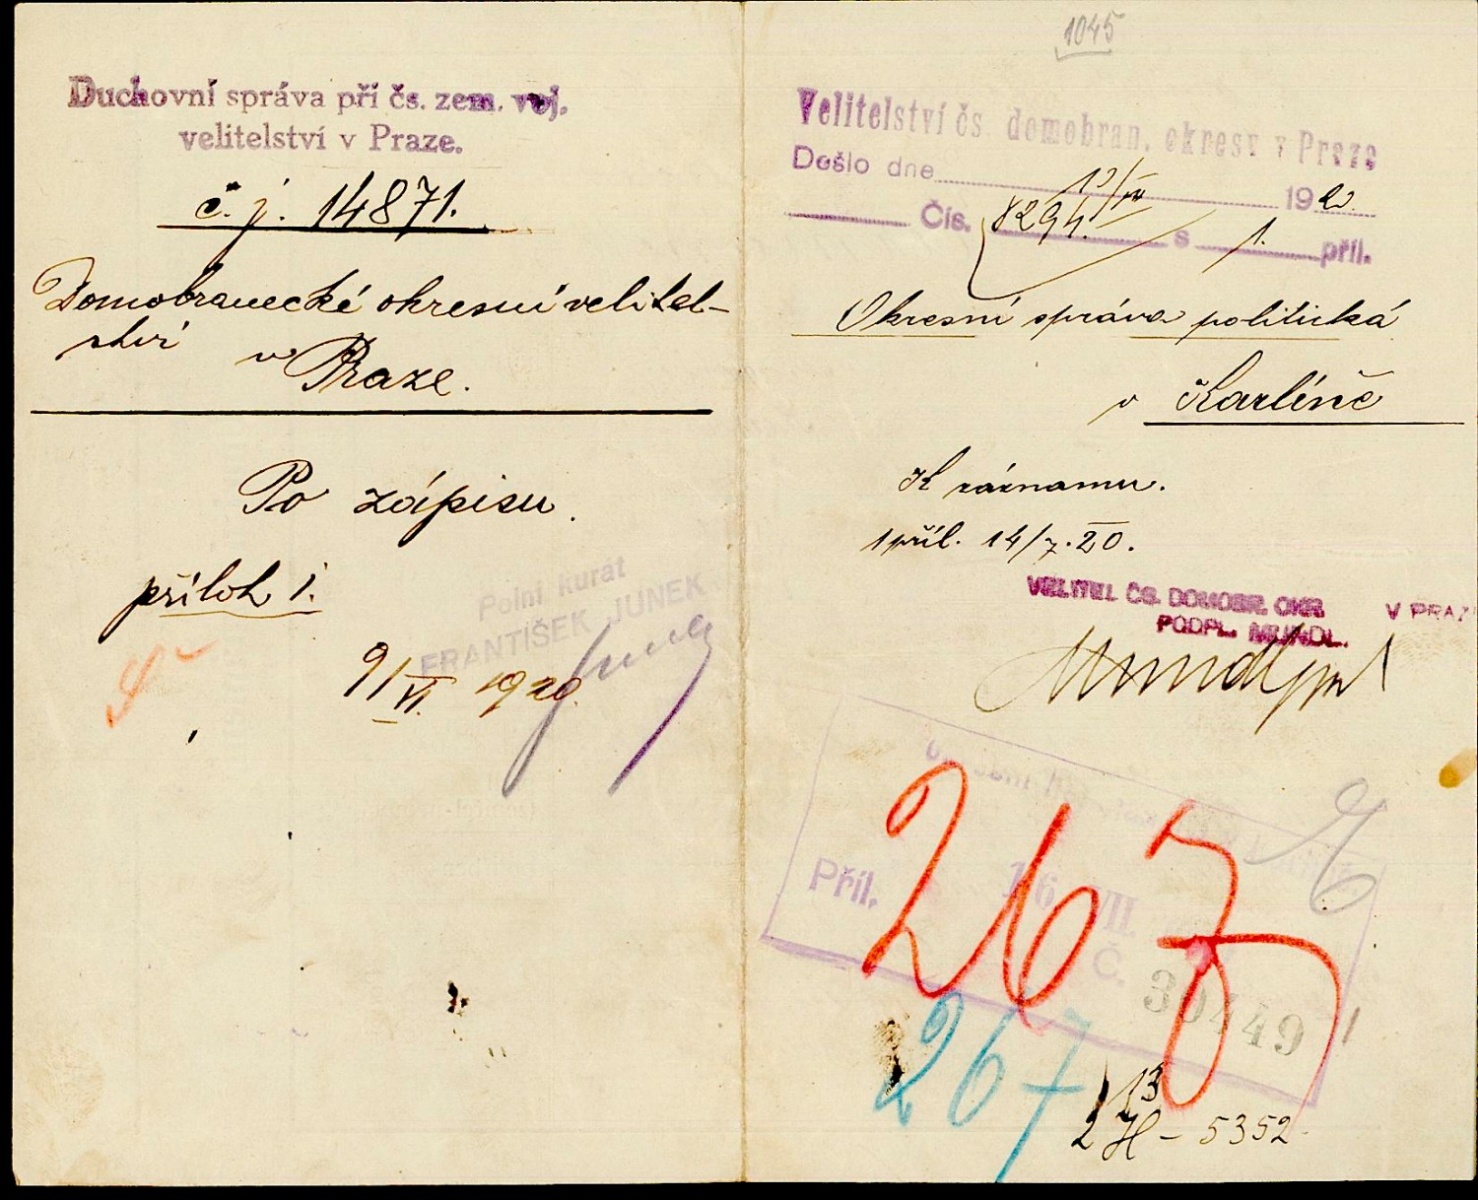 Duchovní správa při čs. zem. voj.
velitelství v Praze.
č. j. 14871.
Domobranecké okresní velitel-
ství
v Praze.
Po zápisu.
příloh 1.
Polní kurát
FRANTIŠEK JUNEK
9/VI. 1920.
1045
Velitelství čs. domobran. okresu v Praze
Došlo dne 1920.
Čís. 8294. s 1. příl.
Okresní správa politická
v Karlíně
K záznamu.
1 příl. 14/7.20.
VELITEL ČS. DOMOBR. OKR. V PRAZ
PODPL. MUNDL.
Mundl
16 VII.
Příl.
Č. 30449
267
267
13
2 H - 5352